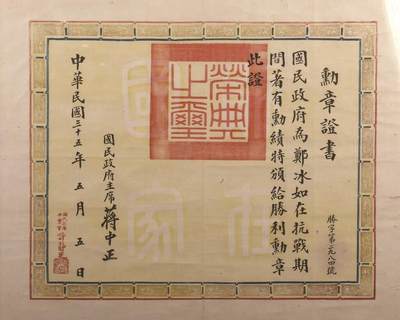 勳章證書
國民政府為鄭冰如在抗戰期
間著有勳績特頒給勝利勳章
此證
榮典之璽
國民政府主席蔣中正
中華民國三十五年五月五日